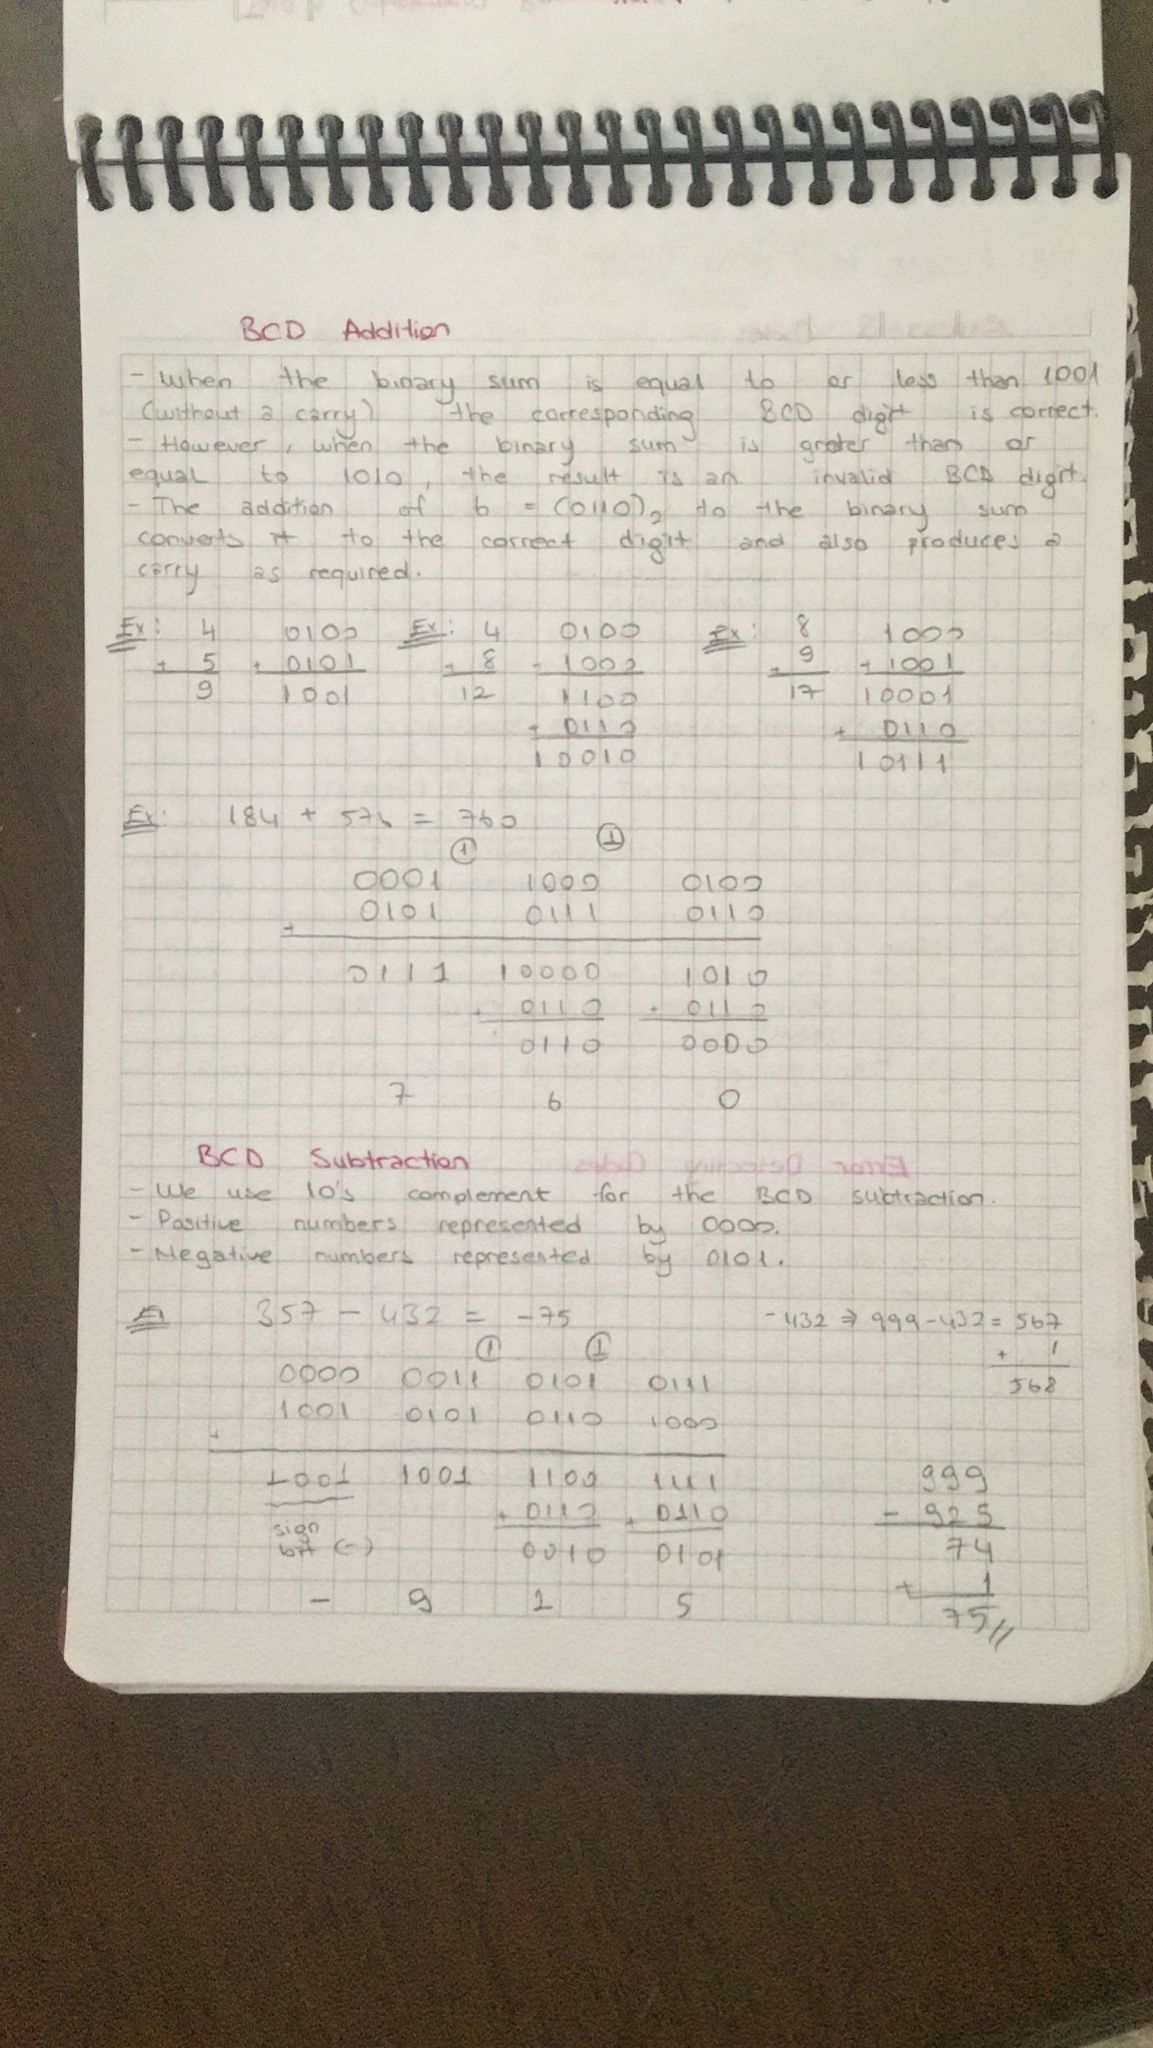 BCD Addition
- When the binary sum is equal to or less than 1001
(without a carry) the corresponding BCD digit is correct.
- However, when the binary sum is grater than or
equal to 1010, the result is an invalid BCD digit.
- The addition of 6 = (0110)2 to the binary sum
converts it to the correct digit and also produces a
carry as required.
Ex: 4 0100 Ex: 4 0100 Ex: 8 1000
+ 5 + 0101 + 8 + 1000 + 9 + 1001
9 1001 12 1100 17 10001
+ 0110 + 0110
10010 10111
Ex: 184 + 576 = 760
1 1
0001 1000 0100
+ 0101 0111 0110
0111 10000 1010
+ 0110 + 0110
0110 0000
7 6 0
BCD Subtraction
- We use 10's complement for the BCD subtraction.
- Positive numbers represented by 0000.
- Negative numbers represented by 0101.
357 - 432 = -75 -432 ⇒ 999-432 = 567
1 1 + 1
0000 0011 0101 0111 568
+ 1001 0101 0110 1000
1001 1001 1100 1111 999
+ 0110 + 0110 - 925
sign bit (-) 0010 0101 74
- 9 2 5 + 1
75//